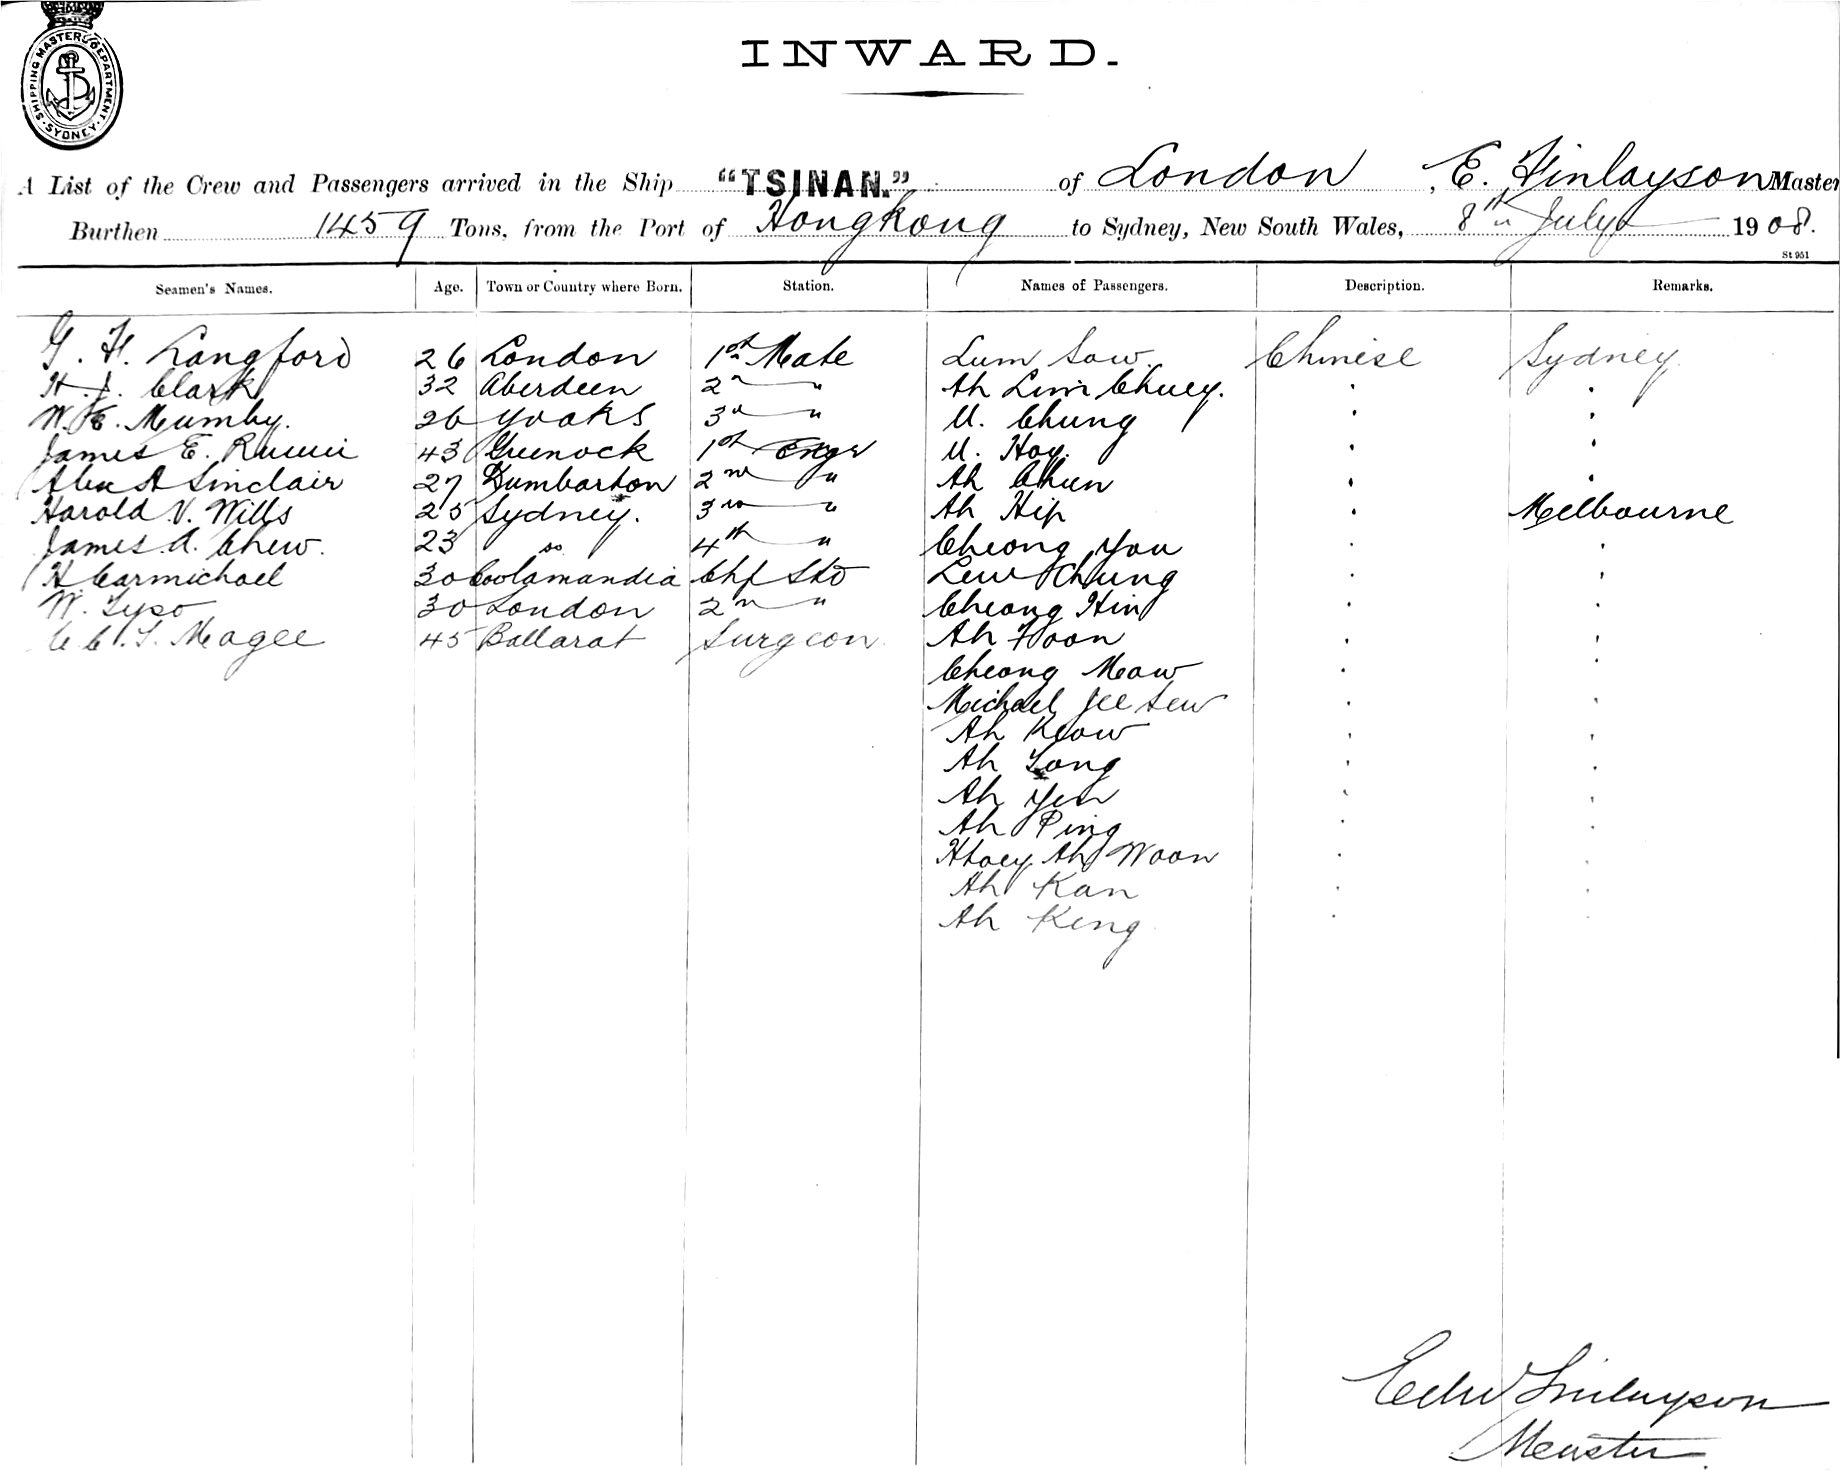 SHIPPING MASTERS DEPARTMENT SYDNEY
INWARD.
A List of the Crew and Passengers arrived in the Ship "TSINAN." of London, E. Finlayson Master
Burthen 1459 Tons, from the Port of Hongkong to Sydney, New South Wales, 8th July 1908.
St 951
Seamen's Names. Age. Town or Country where Born. Station. Names of Passengers. Description. Remarks.
G. H. Langford 26 London 1st Mate Lum Sow Chinese Sydney
H. J. Clark 32 Aberdeen 2nd " Ah Lim Chuey. " "
W. E. Mumby. 26 Yorks 3rd " U. Chung " "
James E. 43 Greenock 1st Engr U. Hoy. " "
Alex A Sinclair 27 Dumbarton 2nd " Ah Chun " "
Harold V. Wills 25 Sydney. 3rd " Ah Hip " Melbourne
James A. Chew. 23 do 4th " Cheong You " "
H Carmichael 30 Coolamandia Chf Std Lew Chung " "
W. Tyso 30 London 2nd " Cheong Hin " "
Magee 45 Ballarat Surgeon Ah Foon " "
Cheong Mow " "
Michael Jee Sew " "
Ah Keow " "
Ah Tong " "
Ah Yen " "
Ah Ping " "
Ah Woon " "
Ah Kan " "
Ah Keng " "
Edw Finlayson
Master